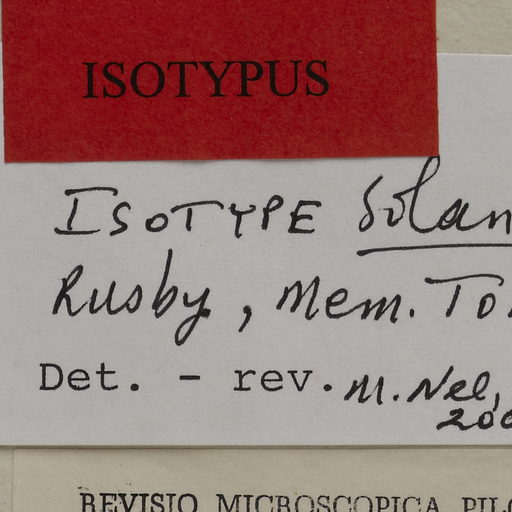 ISOTYPUS
ISOTYPE Solan
Rusby, Mem. To
Det. - rev. M. Nel,
200
REVISIO MICROSCOPICA PIL